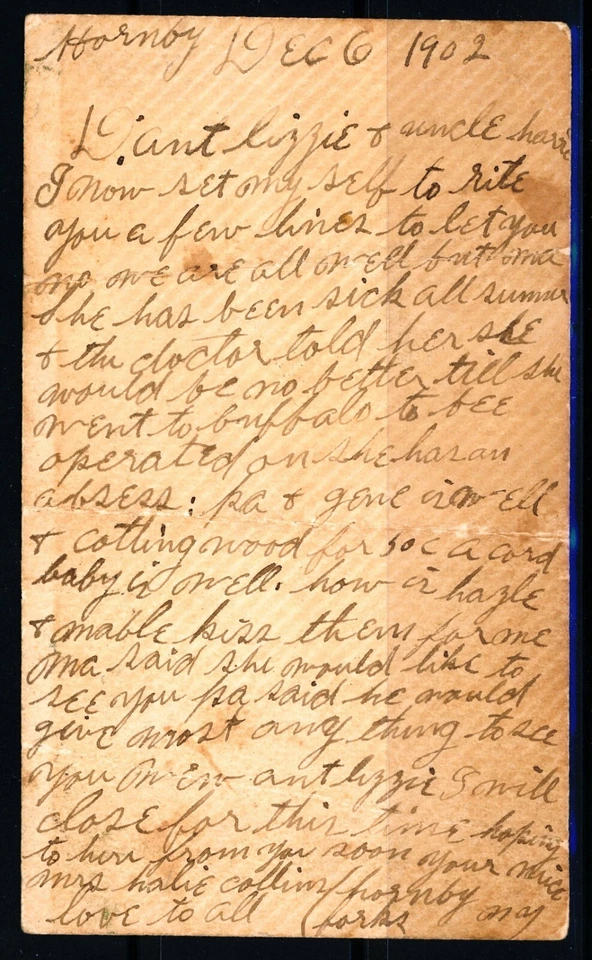 Hornby Dec 6 1902
D. ant lizzie & uncle harrie
I now set my self to rite
you a few lines to let you
no we are all well but ma
she has been sick all summer
& the doctor told her she
would be no better till she
went to buffalo to bee
operated on she has an
absess: pa & gene is well
& cotting wood for 50c a cord
baby is well. how is hazle
& mable kiss them for me
ma said she would like to
see you pa said he would
give most any thing to see
you well ant lizzie I will
close for this time hoping
to here from you soon your niece
mrs halie collins (hornby ny
love to all (forks